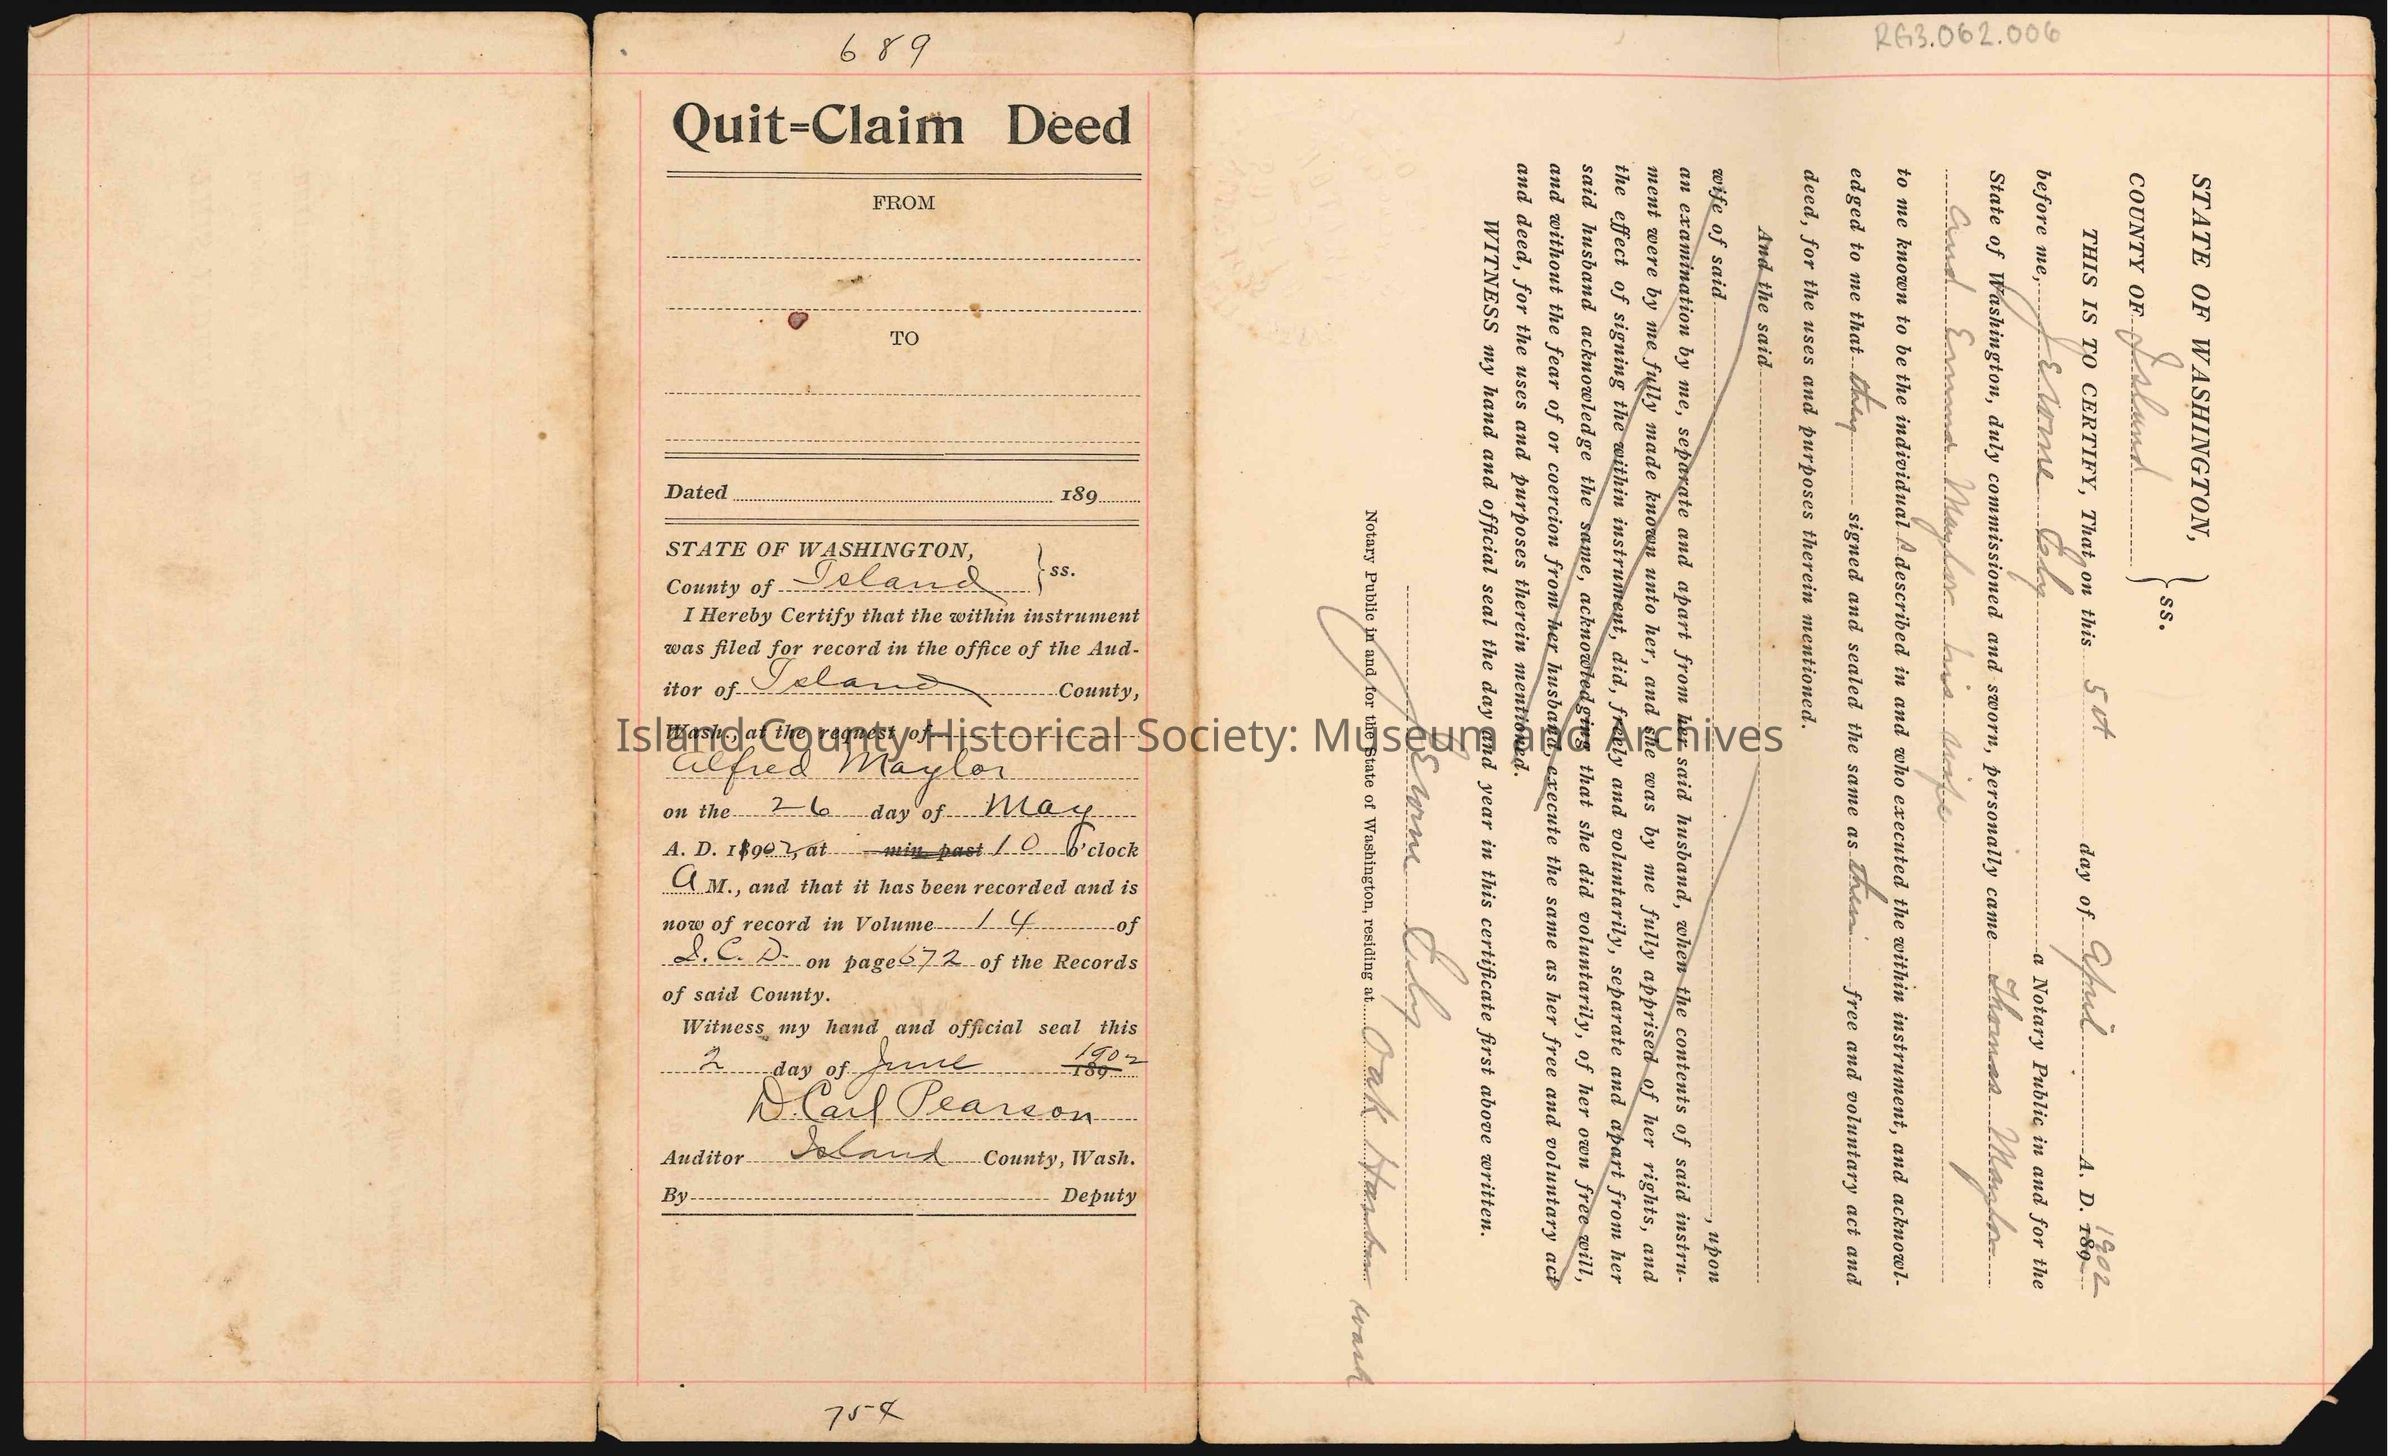 689
Quit=Claim Deed
FROM
TO
Dated 189
STATE OF WASHINGTON,
County of Island ss.
I Hereby Certify that the within instrument
was filed for record in the office of the Aud-
itor of Island County,
Wash., at the request of
Alfred Maylor
on the 26 day of May
A. D. 1902, at min. past 10 o'clock
A M., and that it has been recorded and is
now of record in Volume 14 of
on page 672 of the Records
of said County.
Witness my hand and official seal this
2 day of June 1902 189
D. Carl Pearson
Auditor Island County, Wash.
By Deputy
754
RG3.062.006
STATE OF WASHINGTON,
COUNTY OF Island ss.
THIS IS TO CERTIFY, That on this 5th day of April A. D. 189 1902
before me, Jerome Ely a Notary Public in and for the
State of Washington, duly commissioned and sworn, personally came Thomas Maylor
and Emma Maylor his wife
to me known to be the individual s described in and who executed the within instrument, and acknowl-
edged to me that they signed and sealed the same as their free and voluntary act and
deed, for the uses and purposes therein mentioned.
And the said
wife of said , upon
an examination by me, separate and apart from her said husband, when the contents of said instru-
ment were by me fully made known unto her, and she was by me fully apprised of her rights, and
the effect of signing the within instrument, did, freely and voluntarily, separate and apart from her
said husband acknowledge the same, acknowledging that she did voluntarily, of her own free will,
and without the fear of or coercion from her husband, execute the same as her free and voluntary act
and deed, for the uses and purposes therein mentioned.
WITNESS my hand and official seal the day and year in this certificate first above written.
Jerome Ely
Notary Public in and for the State of Washington, residing at Oak Harbor Wash
Island County Historical Society: Museum and Archives